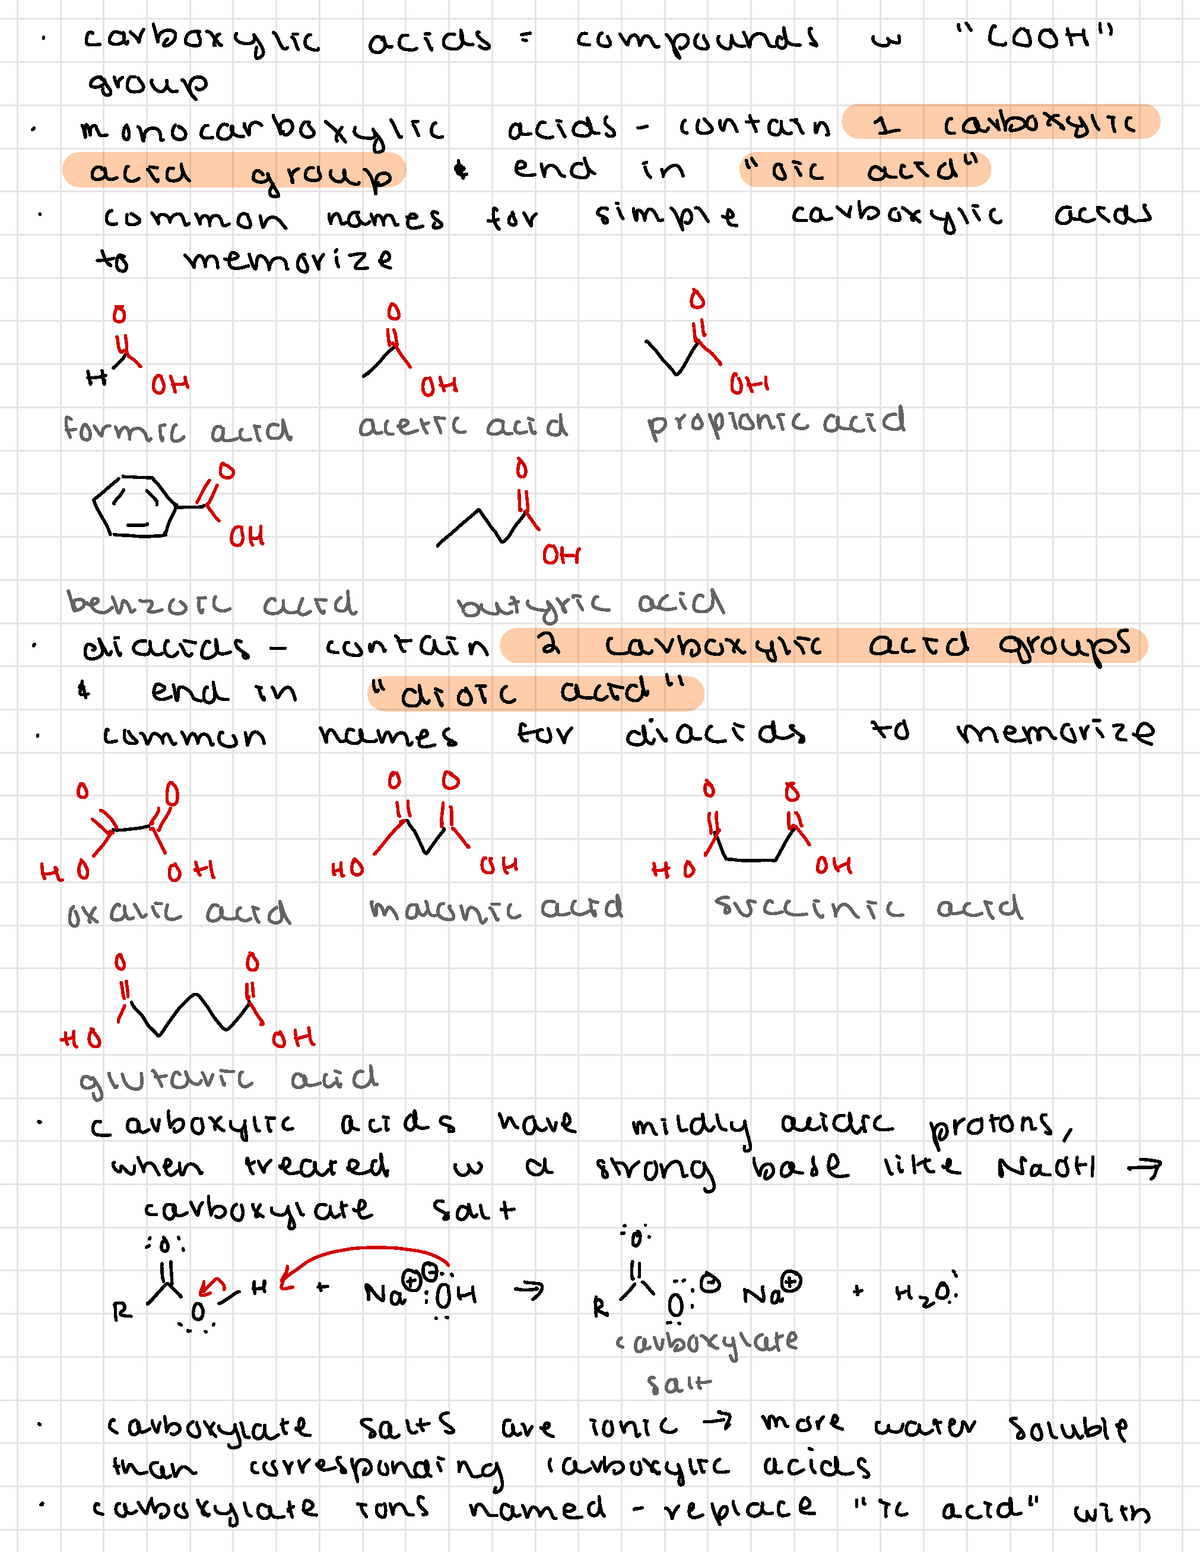 · carboxylic acids = compounds w "COOH"
group
· monocarboxylic acids - contain 1 carboxylic
acid group & end in "oic acid"
· common names for simple carboxylic acids
to memorize
O O O
H OH OH OH
formic acid acetic acid propionic acid
O O
OH OH
benzoic acid butyric acid
· diacids - contain 2 carboxylic acid groups
& end in "dioic acid"
· common names for diacids to memorize
O O O O O O
HO OH HO OH HO OH
oxalic acid malonic acid succinic acid
O O
HO OH
glutaric acid
· carboxylic acids have mildly acidic protons,
when treated w a strong base like NaOH →
carboxylate salt
:O: :O:
R O H + Na⊕ ⊖:OH → R O:⊖ Na⊕ + H₂O:
carboxylate
salt
· carboxylate salts are ionic → more water soluble
than corresponding carboxylic acids
· carboxylate ions named - replace "ic acid" with